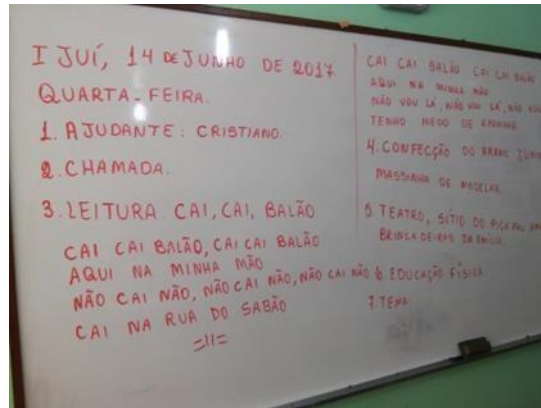 IJUÍ, 14 DE JUNHO DE 2017
QUARTA-FEIRA.
1. AJUDANTE: CRISTIANO.
2. CHAMADA.
3. LEITURA CAI, CAI, BALÃO
CAI CAI BALÃO, CAI CAI BALÃO
AQUI NA MINHA MÃO
NÃO CAI NÃO, NÃO CAI NÃO, NÃO CAI NÃO
CAI NA RUA DO SABÃO
=11=
CAI CAI BALÃO CAI CAI BALÃO
AQUI NA MINHA MÃO
NÃO VOU LÁ, NÃO VOU LÁ, NÃO VOU
TENHO MEDO DE APANHAR
4. CONFECÇÃO DO
MASSINHA DE MODELAR
5. TEATRO, SÍTIO DO PICA PAU
BRINCADEIRAS DA EMÍLIA.
6. EDUCAÇÃO FÍSICA
7. TEMA